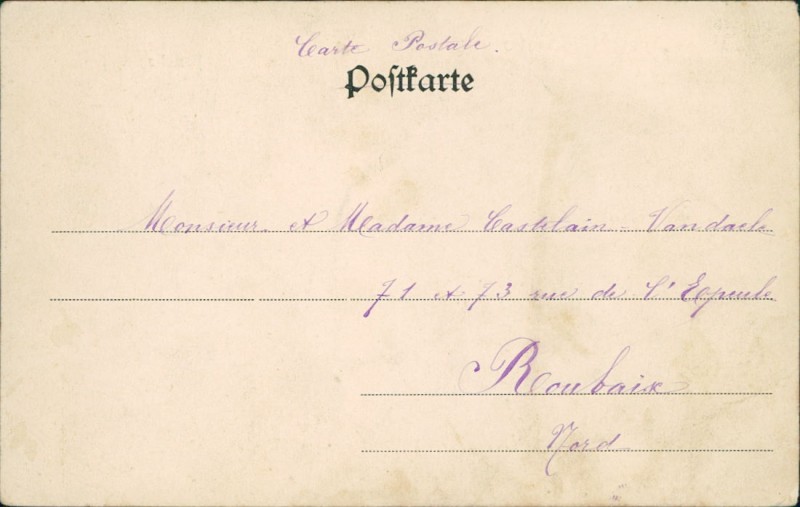 Carte Postale.
Postkarte
Monsieur et Madame Castelain-Vandaele
71 et 73 rue de l'Epeule
Roubaix
Nord